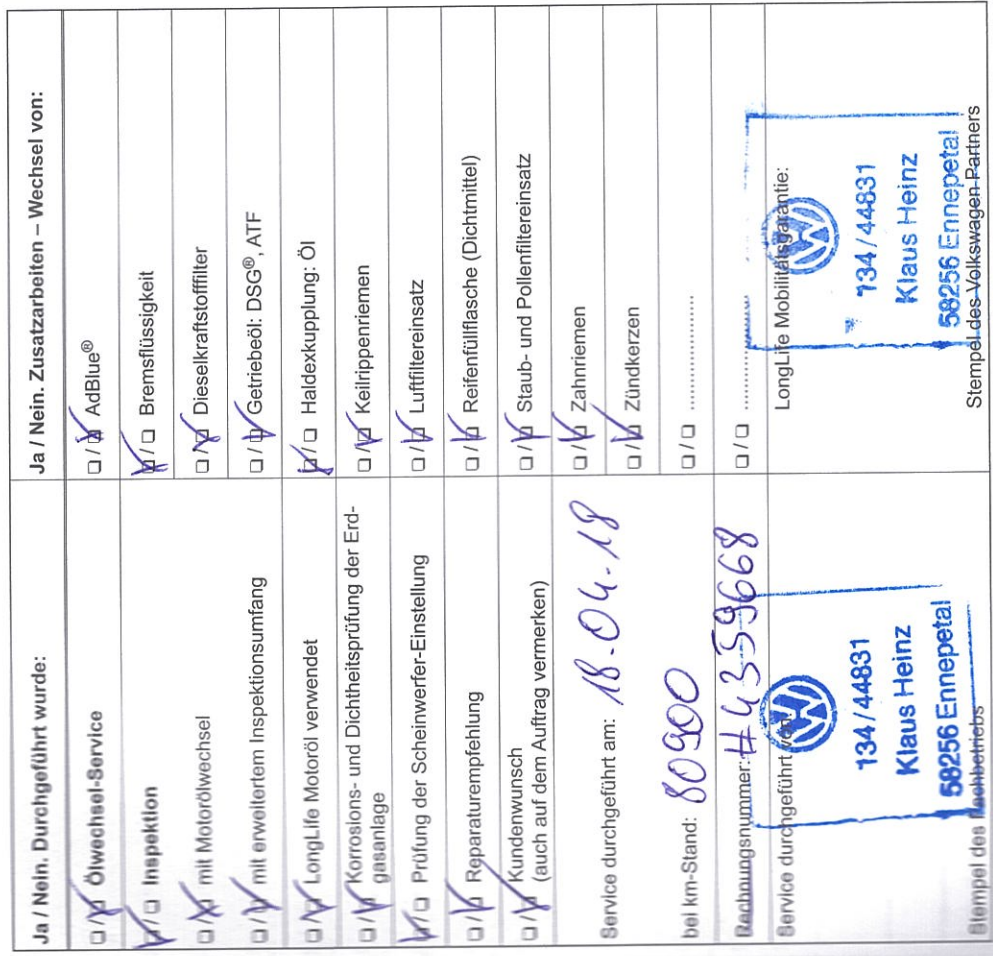 Ja / Nein. Durchgeführt wurde:
Ölwechsel-Service
Inspektion
mit Motorölwechsel
mit erweitertem Inspektionsumfang
LongLife Motoröl verwendet
Korrosions- und Dichtheitsprüfung der Erd-
gasanlage
Prüfung der Scheinwerfer-Einstellung
Reparaturempfehlung
Kundenwunsch
(auch auf dem Auftrag vermerken)
Service durchgeführt am: 18-04-18
bei km-Stand: 80900
Rechnungsnummer: #4359668
Service durchgeführt von:
134/44831
Klaus Heinz
58256 Ennepetal
Stempel des Fachbetriebs
Ja / Nein. Zusatzarbeiten – Wechsel von:
AdBlue®
Bremsflüssigkeit
Dieselkraftstofffilter
Getriebeöl: DSG®, ATF
Haldexkupplung: Öl
Keilrippenriemen
Luftfiltereinsatz
Reifenfüllflasche (Dichtmittel)
Staub- und Pollenfiltereinsatz
Zahnriemen
Zündkerzen
LongLife Mobilitätsgarantie:
134/44831
Klaus Heinz
58256 Ennepetal
Stempel des Volkswagen Partners